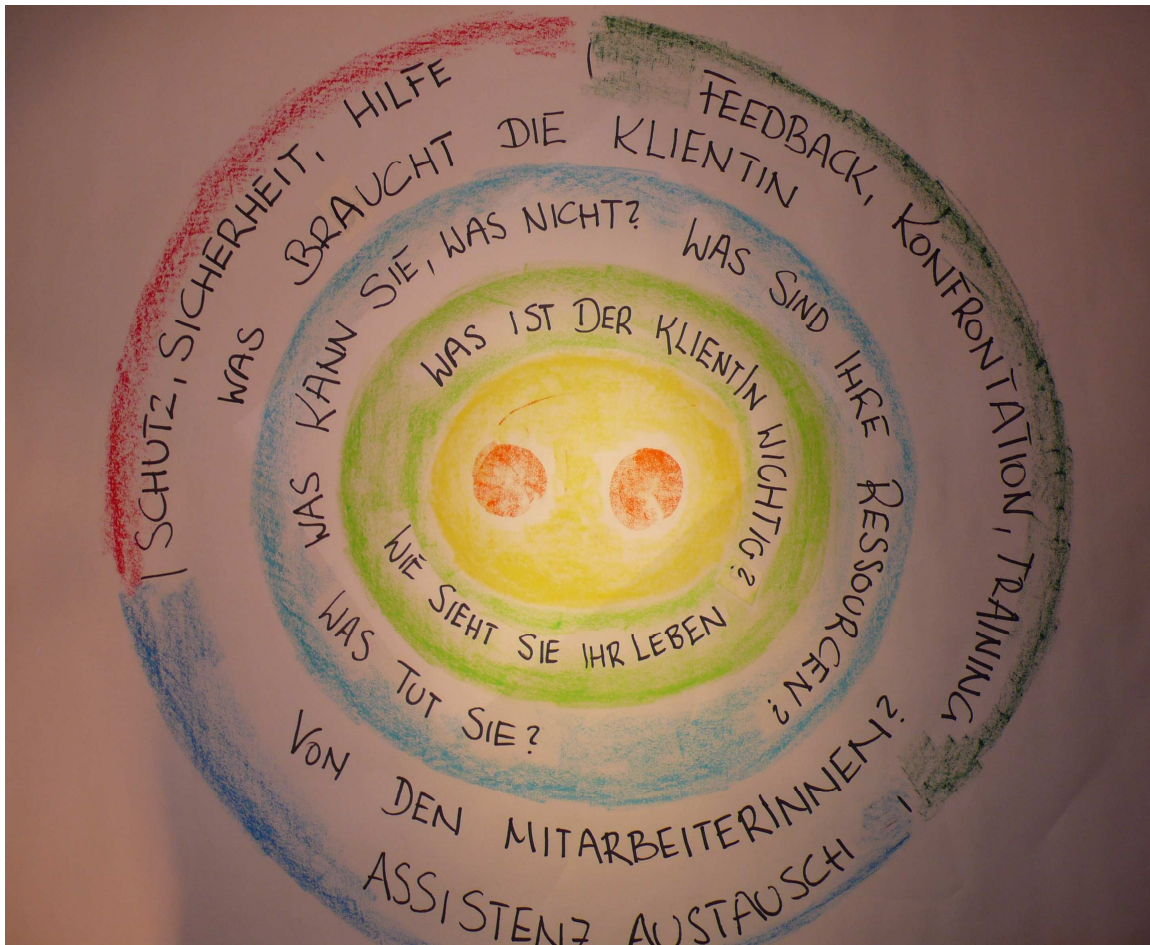 SCHUTZ, SICHERHEIT, HILFE
FEEDBACK, KONFRONTATION, TRAINING
ASSISTENZ AUSTAUSCH
WAS BRAUCHT DIE KLIENTIN
VON DEN MITARBEITERINNEN?
WAS KANN SIE, WAS NICHT?
WAS SIND IHRE RESSOURCEN?
WAS TUT SIE?
WAS IST DER KLIENTIN WICHTIG?
WIE SIEHT SIE IHR LEBEN